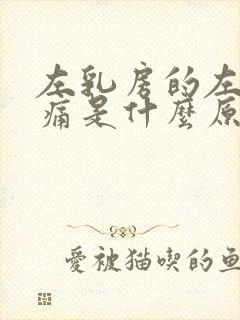 左乳房的左
痛是什麼原
愛被猫喫的魚